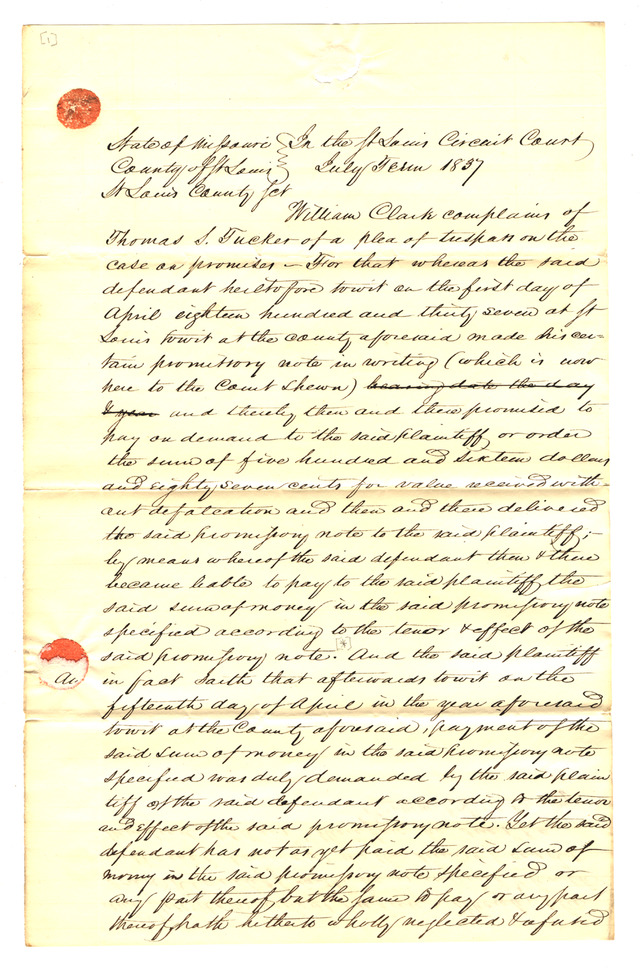 [1]
State of Missouri } In the St Louis Circuit Court
County of St Louis } July Term 1837
St Louis County sct
William Clark complains of
Thomas S. Tucker of a plea of trespass on the
case on promises – For that whereas the said
defendant heretofore towit on the first day of
April eighteen hundred and thirty seven at St
Louis towit at the county aforesaid made his cer-
tain promissory note in writing (which is now
here to the Court Shewn) bearing date the day
& year and thereby then and there promised to
pay on demand to the said plaintiff or order
the sum of five hundred and sixteen dollars
and eighty seven cents for value received with-
out defalcation and then and there delivered
the said promissory note to the said plaintiff;-
by means whereof the said defendant then & there
became liable to pay to the said plaintiff the
said sum of money in the said promissory note
specified according to the tenor & effect of the
said promissory note. And the said plaintiff
Au in fact saith that afterwards towit on the
fifteenth day of April in the year aforesaid
towit at the County aforesaid, payment of the
said sum of money in the said promissory note
specified was duly demanded by the said plain
tiff of the said defendant according to the tenor
and effect of the said promissory note. Yet the said
defendant has not as yet paid the said sum of
money in the said promissory note specified or
any part thereof, but the same to pay or any part
thereof, hath hitherto wholly neglected & refused